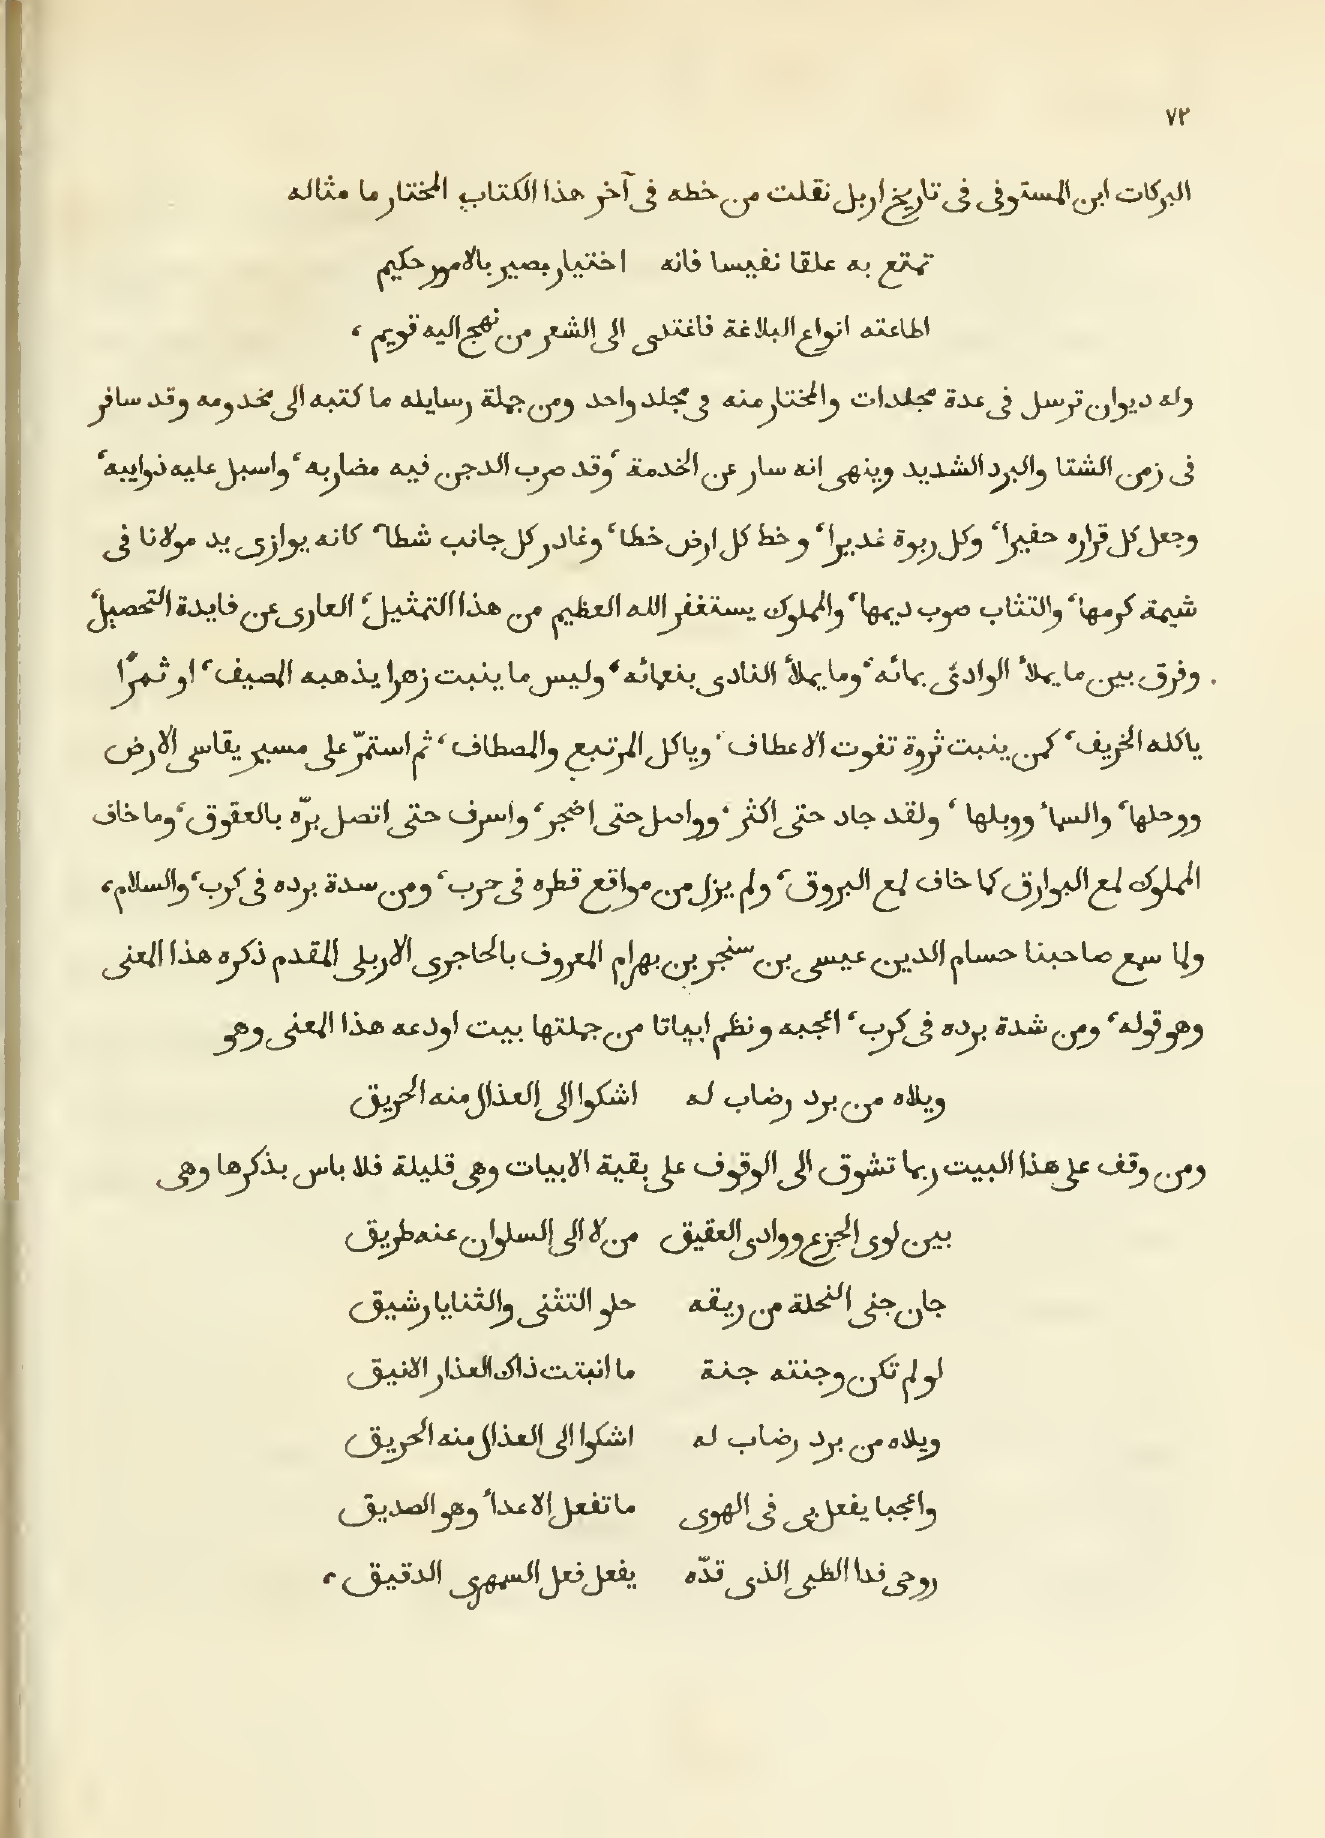 ٧٢
البركات ابن المستوفى فى تاريخ اربل نقلت من خطه فى آخر هذا الكتاب المختار ما مثاله
تمتع به علقا نفيسا فانه اختيار بصير بالامور حكيم
اطاعته انواع البلاغة فاغتدى الى الشعر من نهج اليه قويم ،
وله ديوان ترسل فى عدة مجلدات والمختار منه فى مجلد واحد ومن جملة رسايله ما كتبه الى مخدومه وقد سافر
فى زمن الشتا والبرد الشديد وينهى انه سار عن الخدمة ‘ وقد ضرب الدجن فيه مضاربه ‘ واسبل عليه ذوايبه ‘
وجعل كل قراره حفيرا ‘ وكل ربوة غديرا ‘ وخط كل ارض خطا ‘ وغادر كل جانب شطا ‘ كانه يوازى يد مولانا فى
شيمة كرمها ‘ والتثاب صوب ديمها ‘ والمملوك يستغفر الله العظيم من هذا التمثيل ‘ العارى عن فايدة التحصيل ‘
وفرق بين ما يملأ الوادى بمائه ‘ وما يملأ النادى بنعمائه ‘ وليس ما ينبت زهرا يذهبه المصيف ‘ او ثمرًا
ياكله الخريف ‘ كمن ينبت ثروة تفوت الاعطاف ‘ وياكل المرتبع والمصطاف ‘ ثم استمرّ على مسير يقاسى الارض
ووحلها ‘ والسماء ووبلها ‘ ولقد جاد حتى اكثر ‘ وواصل حتى اضجر ‘ واسرف حتى اتصل برّه بالعقوق ‘ وما خاف
المملوك لمع البوارق كما خاف لمع البروق ‘ ولم يزل من مواقع قطره فى حرب ‘ ومن سدة برده فى كرب ‘ والسلام ،
ولما سمع صاحبنا حسام الدين عيسى بن سنجر بن بهرام المعروف بالحاجرى الاربلى المقدم ذكره هذا المعنى
وهو قوله ‘ ومن شدة برده فى كرب ‘ اعجبه ونظم ابياتا من جملتها بيت اودعه هذا المعنى وهو
ويلاه من برد رضاب له اشكوا الى العذال منه الحريق
ومن وقف على هذا البيت ربما تشوق الى الوقوف على بقية الابيات وهى قليلة فلا باس بذكرها وهى
بين لوى الجزع ووادى العقيق من لا الى السلوان عنه طريق
جان جنى النحلة من ريقه حلو التثنى والثنايا رشيق
لو لم تكن وجنته جنة ما انبتت ذاك العذار الانيق
ويلاه من برد رضاب له اشكوا الى العذال منه الحريق
واعجبا يفعل بى فى الهوى ما تفعل الاعداء وهو الصديق
روحى فدا الظبى الذى قدّه يفعل فعل السمهرى الدقيق ،